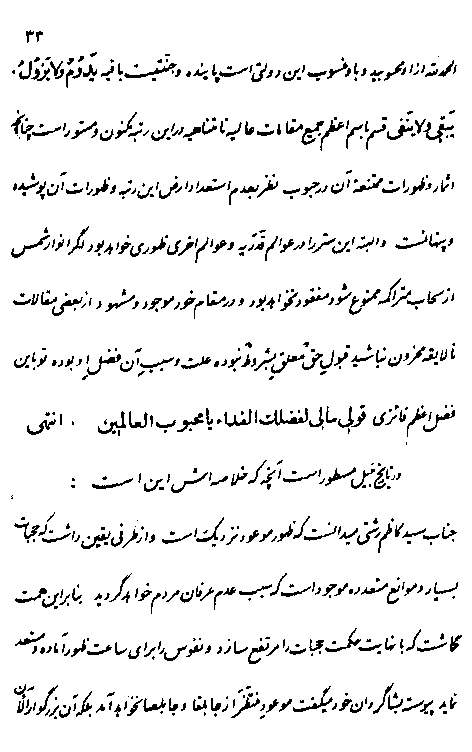 ۳۳
الحمدلله از او محبوبید و باو منسوب این دولتی است پاینده و جنتیست باقیه یدوم و لا یزول
یبقی و لا یفنی قسم باسم اعظم جمیع مقامات عالیه نامتناهیه در این رتبه مکنون و مستور است چنانچه
اثار و ظهورات ممتنعه آن در حبوب نظر بعدم استعداد ارض این رتبه و ظهورات آن پوشیده
و پنهانست والبته این ستر را در عوالم قدریه و عوالم اخری ظهوری خواهد بود اگر انوار شمس
از سحاب متراکمه ممنوع شود مفقود نخواهد بود و در مقام خود موجود و مشهود از بعضی مقالات
نالایقه محزون نباشید قبول حق معلق بشروط نبوده علت و سبب آن فضل او بوده تو باین
فضل اعظم فائزی قولی مالی لفضلك الفداء یا محبوب العالمین . انتهی
در تاریخ نبیل مسطور است آنچه که خلاصه اش این است :
جناب سید کاظم رشتی میدانست که ظهور موعود نزدیک است و از طرفی یقین داشت که حجبات
بسیار و موانع متعدده موجود است که سبب عدم عرفان مردم خواهد گردید بنابراین همت
گماشت که با نهایت حکمت حجبات را مرتفع سازد و نفوس را برای ساعت ظهور آماده و مستعد
نماید پیوسته بشاگردان خود میگفت موعود منتظر از جابلقا و جابلصا نخواهد آمد بلکه آن بزرگوار الآن